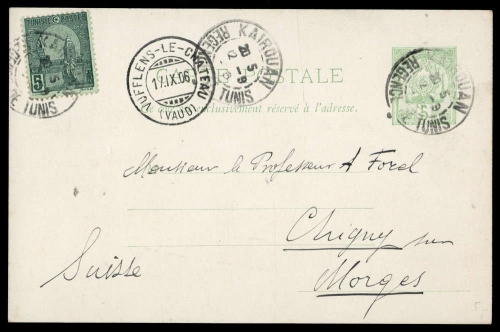 TUNISIE POSTES
5
KAIROUAN
REGENCE
TUNIS
VUFFLENS-LE-CHATEAU
17.IX.06
(VAUD)
KAIROUAN
TUNIS
CARTE POSTALE
exclusivement réservé à l'adresse.
Monsieur le Professeur A Forel
Chigny sur
Morges
Suisse